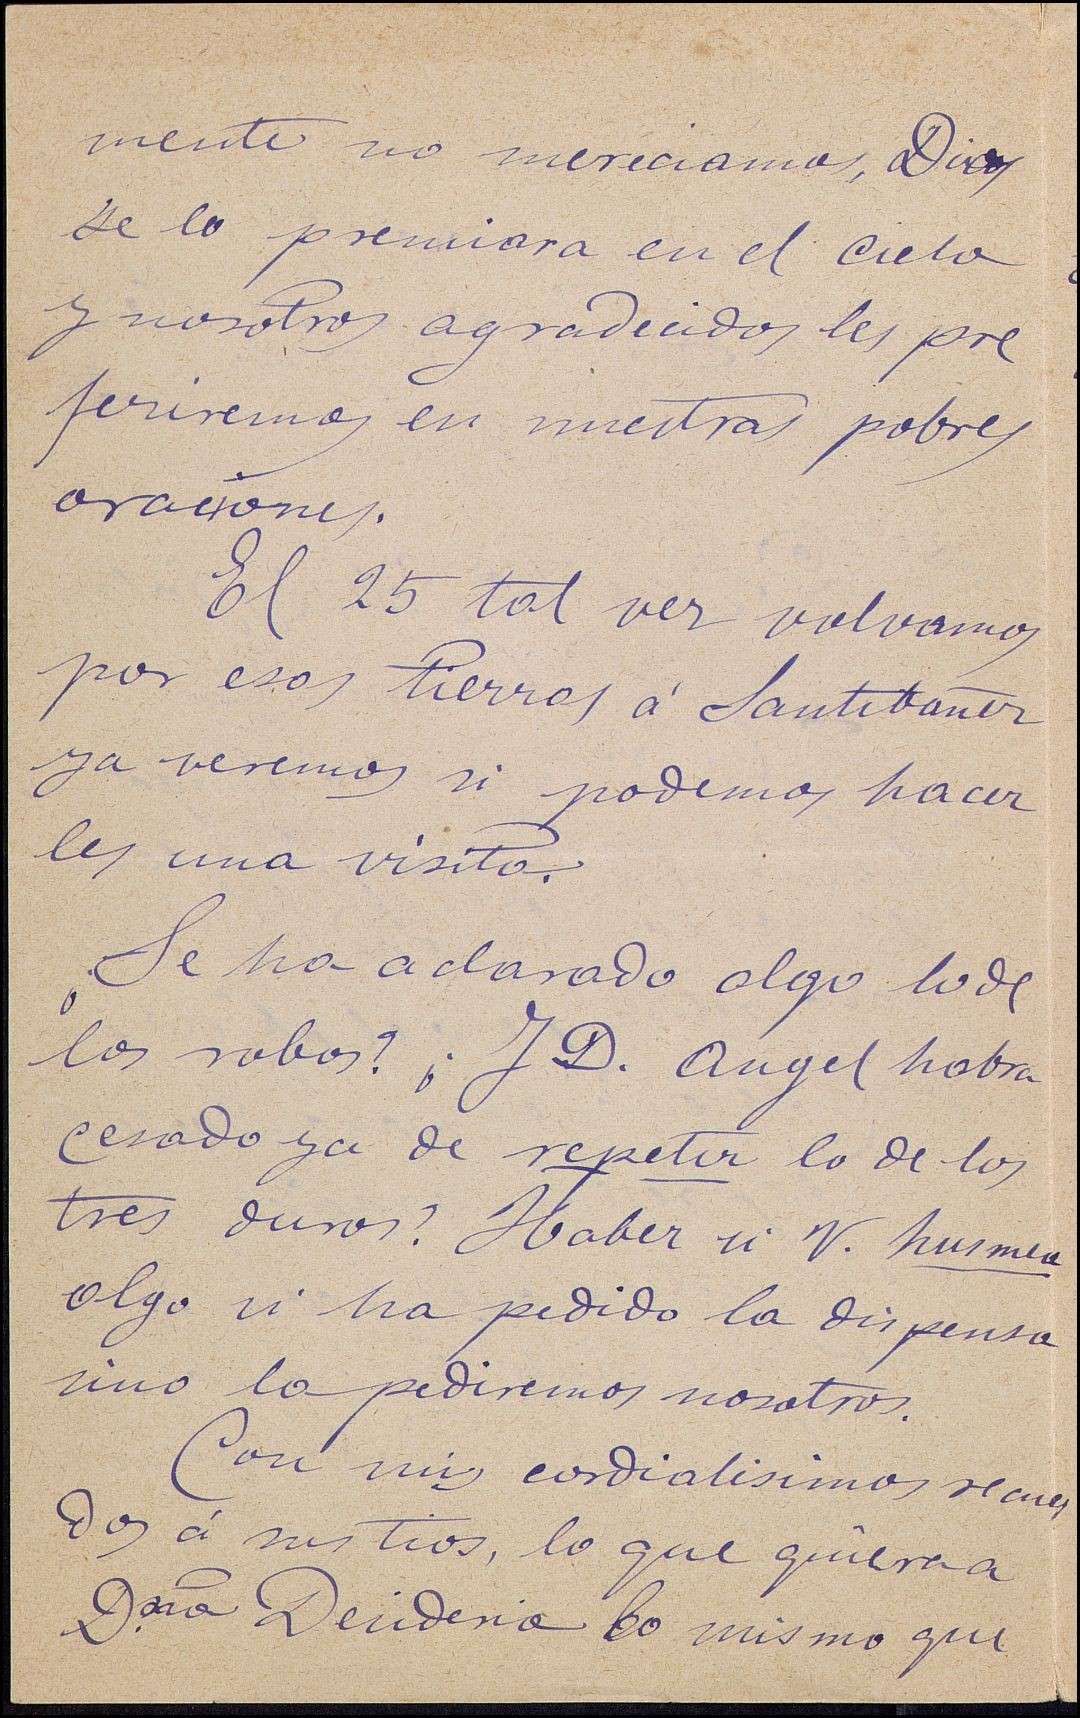 mente no mereciamos, Dios
se lo premiara en el cielo
y nosotros agradecidos les pre
feriremos en nuestras pobres
oraciones.
El 25 tal vez volvamos
por esas tierras á Santibañez
ya veremos si podemos hacer
les una visita.
¿Se ha aclarado algo lo de
los robos? ¿Y D. Angel habra
cesado ya de repetir lo de los
tres duros? Haber si V. husmea
algo si ha pedido la dispensa
sino la pediremos nosotros.
Con mis cordialisimos recuer
dos á sus tios, lo que quiera a
D.ña Deideria lo mismo que